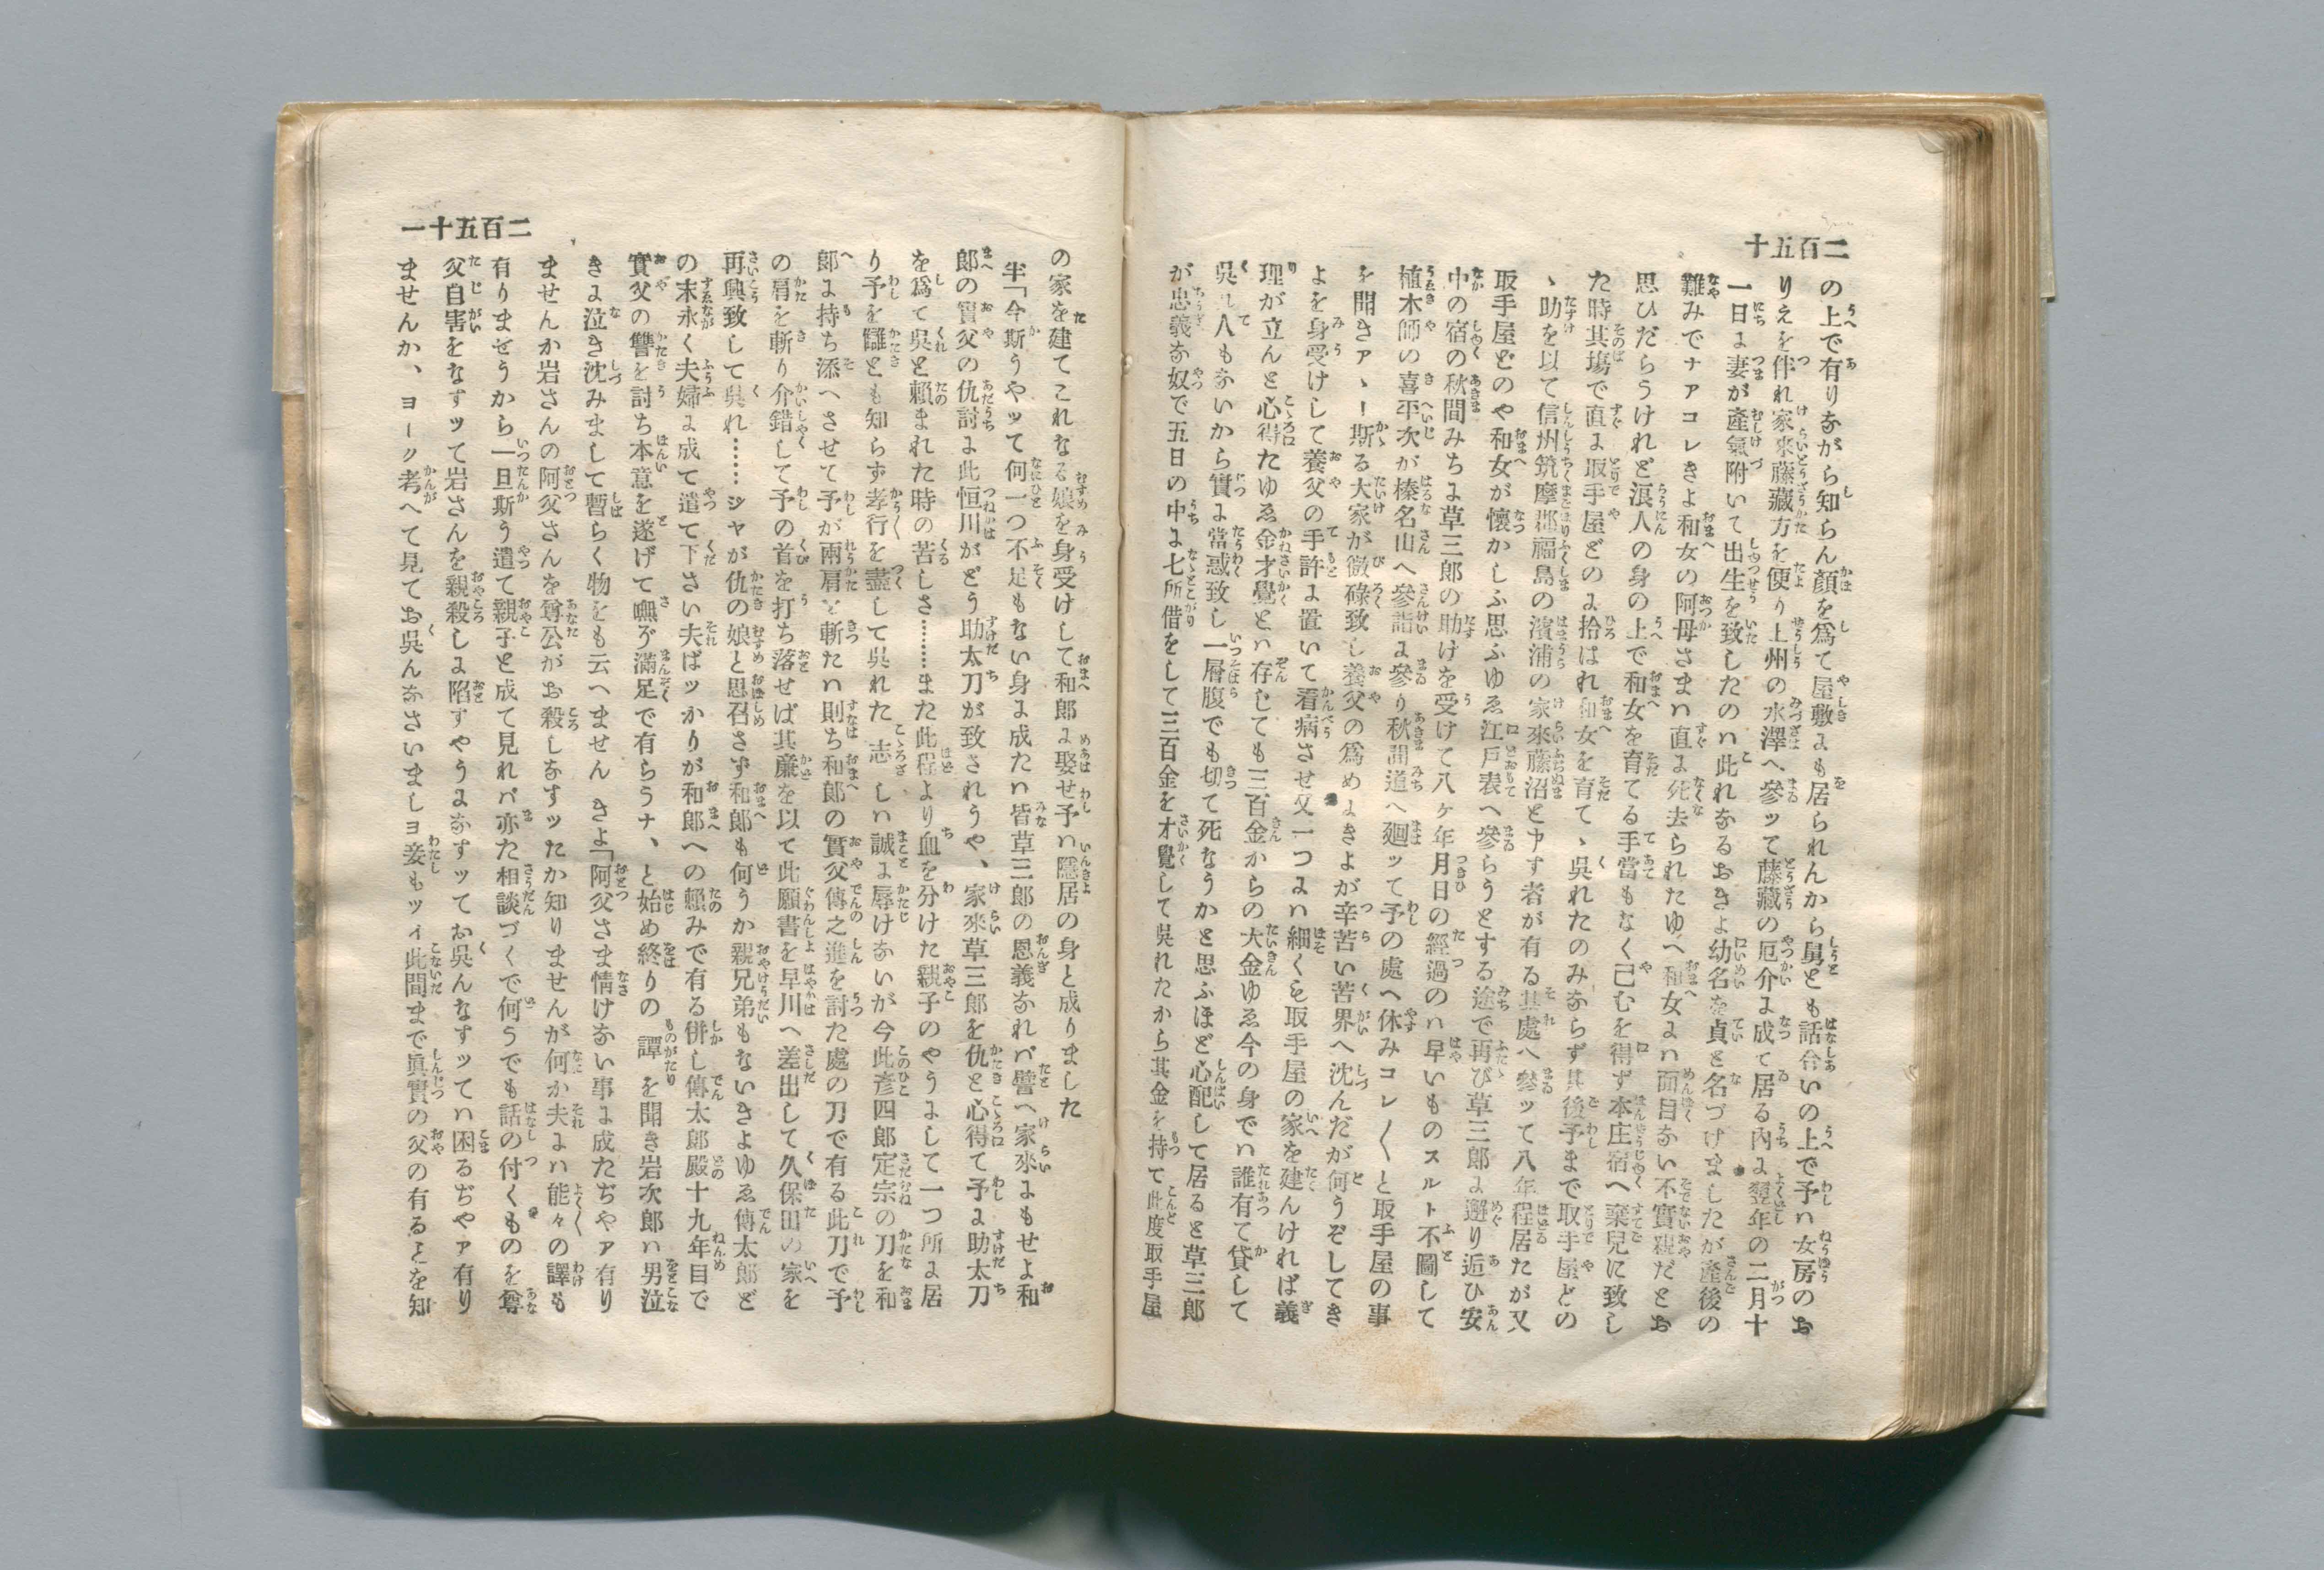 二百五十
の上で有りながら知らん顏を爲て屋敷にも居られんから舅とも話合いの上で予ハ女房のお
りえを伴れ家來藤藏方を便り上州の水澤へ參ッて藤藏の厄介に成て居る內に翌年の二月十
一日に妻が產氣附いて出生を致したのハ此れなるおきよ幼名を貞と名づけましたが產後の
難みでナアコレきよ和女の阿母さまハ直に死去られたゆへ和女にハ面目ない不實親だとお
思ひだらうけれど浪人の身の上で和女を育てる手當もなく已むを得ず本庄宿へ棄兒に致し
た時其塲で直に取手屋どのに拾はれ和女を育てゝ吳れたのみならず其後予まで取手屋どの
ゝ助を以て信州筑摩郡福島の濱浦の家來藤沼と申す者が有る其處へ參ッて八年程居たが又
取手屋どのや和女が懷かしふ思ふゆゑ江戶表へ參らうとする途で再び草三郎に邂り近ひ安
中の宿の秋間みちに草三郎の助けを受けて八ヶ年月日の經過のハ早いものスルト不圖して
植木師の喜平次が榛名山へ參詣に參り秋間道へ廻ッて予の處へ休みコレ〱と取手屋の事
を開きアヽー斯る大家が微碌致し養父の爲めにきよが辛苦い苦界へ沈んだが何うぞしてき
よを身受けして養父の手許に置いて看病させ又一つにハ細くも取手屋の家を建んければ義
理が立んと心得たゆゑ金才覺とハ存じても三百金からの大金ゆゑ今の身でハ誰有て貸して
吳し人もないから實に當惑致し一層腹でも切て死なうかと思ふほど心配して居ると草三郎
が忠義な奴で五日の中に七所借をして三百金を才覺して吳れたから其金を持て此度取手屋
二百五十一
の家を建てこれなる娘を身受けして和郎に娶せ予ハ隱居の身と成りました
半「今斯うやッて何一つ不足もない身に成たハ皆草三郎の恩義なれバ譬へ家來にもせよ和
郎の實父の仇討に此恒川がどう助太刀が致されうや、家來草三郎を仇と心得て予に助太刀
を爲て吳と賴まれた時の苦しさ………また此程より血を分けた親子のやうにして一つ所に居
り予を讎とも知らず孝行を盡して吳れた志しハ誠に辱けないが今此彥四郎定宗の刀を和
郎に持ち添へさせて予が兩肩を斬たハ則ち和郎の實父傳之進を討た處の刀で有る此刀で予
の肩を斬り介錯して予の首を打ち落せば其廉を以て此願書を早川へ差出して久保田の家を
再興致して吳れ……シヤが仇の娘と思召さず和郎も何うか親兄弟もないきよゆゑ傳太郎ど
の末永く夫婦に成て遣て下さい夫ばッかりが和郎への賴みで有る併し傳太郎殿十九年目で
實父の讐を討ち本意を遂げて嘸ヶ滿足で有らうナ、と始め終りの譚を聞き岩次郎ハ男泣
きに泣き沈みまして暫らく物をも云へません　きよ「阿父さま情けない事に成たぢやア有り
ませんか岩さんの阿父さんを尊公がお殺しなすッたか知りませんが何か夫にハ能々の譯も
有りませうから一旦斯う遣て親子と成て見れバ亦た相談づくで何うでも話の付くものを尊
父自害をなすッて岩さんを親殺しに陷すやうになすッてお吳んなすッてハ困るぢやア有り
ませんか、ヨーク考へて見てお吳んなさいましヨ妾もツイ此間まで眞實の父の有ることを知